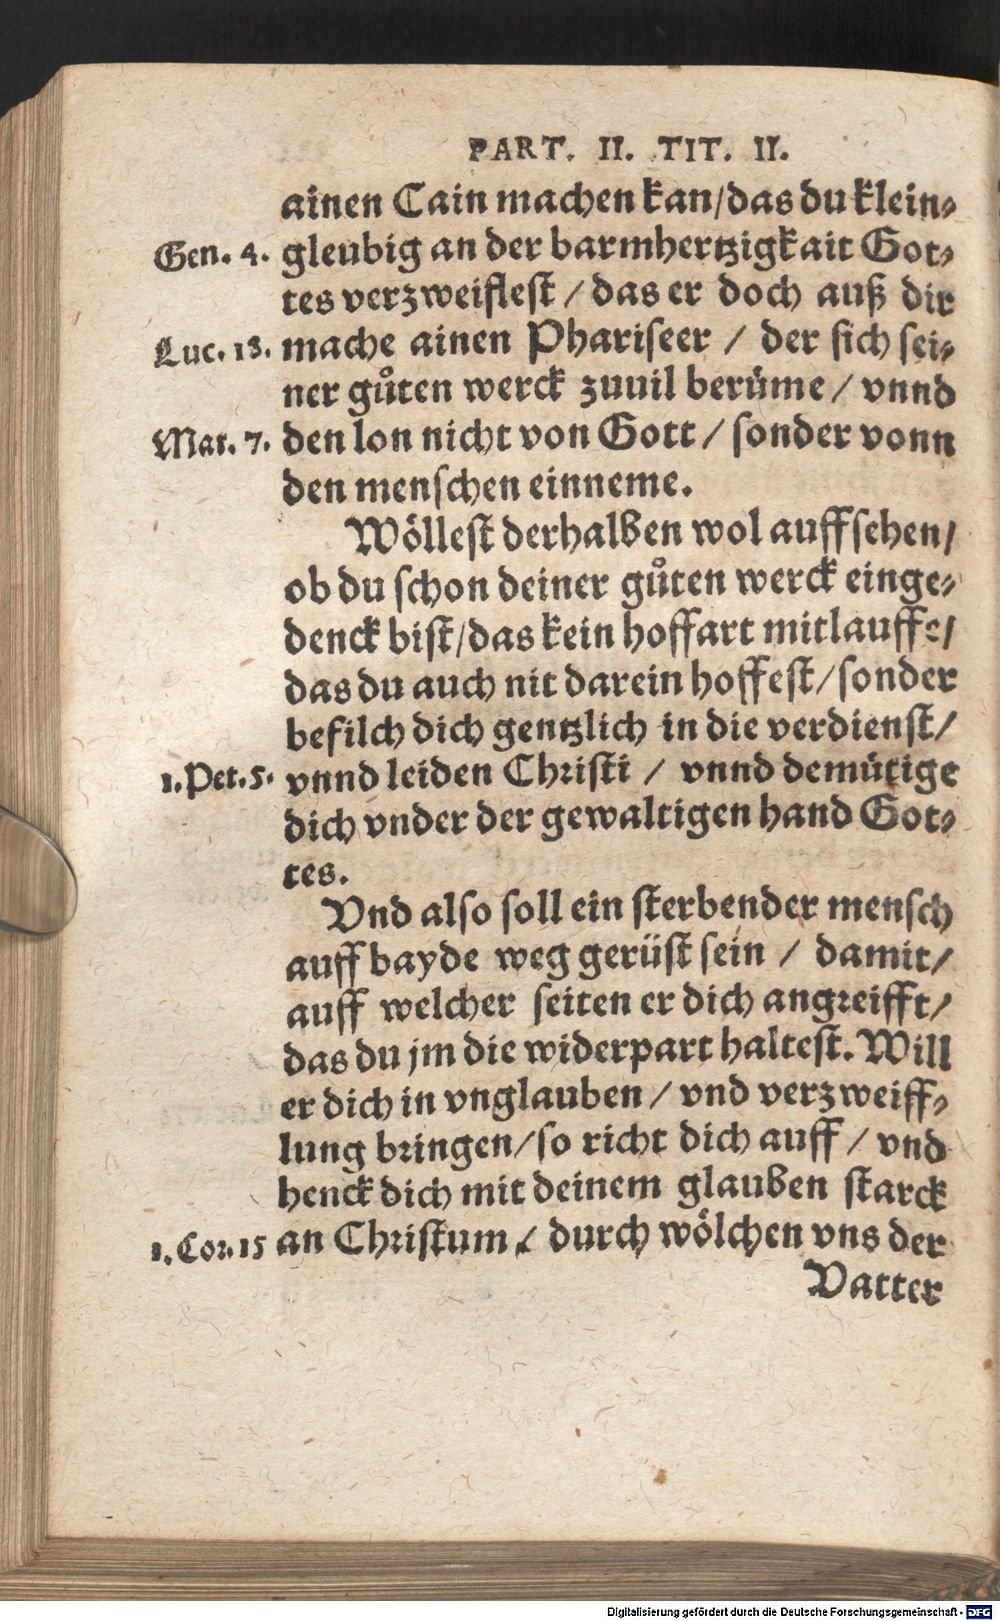 PART. II. TIT. II.
ainen Cain machen kan/das du klein⸗
Gen. 4. gleubig an der barmhertzigkait Got⸗
tes verzweiflest / das er doch auß dir
Luc. 18. mache ainen Phariseer / der sich sei⸗
ner gůten werck zuuil berüme / vnnd
Mat. 7. den lon nicht von Gott / sonder vonn
den menschen einneme.
Wöllest derhalben wol auffsehen/
ob du schon deiner gůten werck einge⸗
denck bist/das kein hoffart mitlauffe/
das du auch nit darein hoffest/sonder
befilch dich gentzlich in die verdienst/
1. Pet. 5. vnnd leiden Christi / vnnd demütige
dich vnder der gewaltigen hand Got⸗
tes.
Vnd also soll ein sterbender mensch
auff bayde weg gerüst sein / damit/
auff welcher seiten er dich angreifft/
das du jm die widerpart haltest. Will
er dich in vnglauben / vnd verzweiff⸗
lung bringen/so richt dich auff / vnd
henck dich mit deinem glauben starck
1. Cor. 15 an Christum / durch wölchen vns der
Vatter
Digitalisierung gefördert durch die Deutsche Forschungsgemeinschaft - DFG